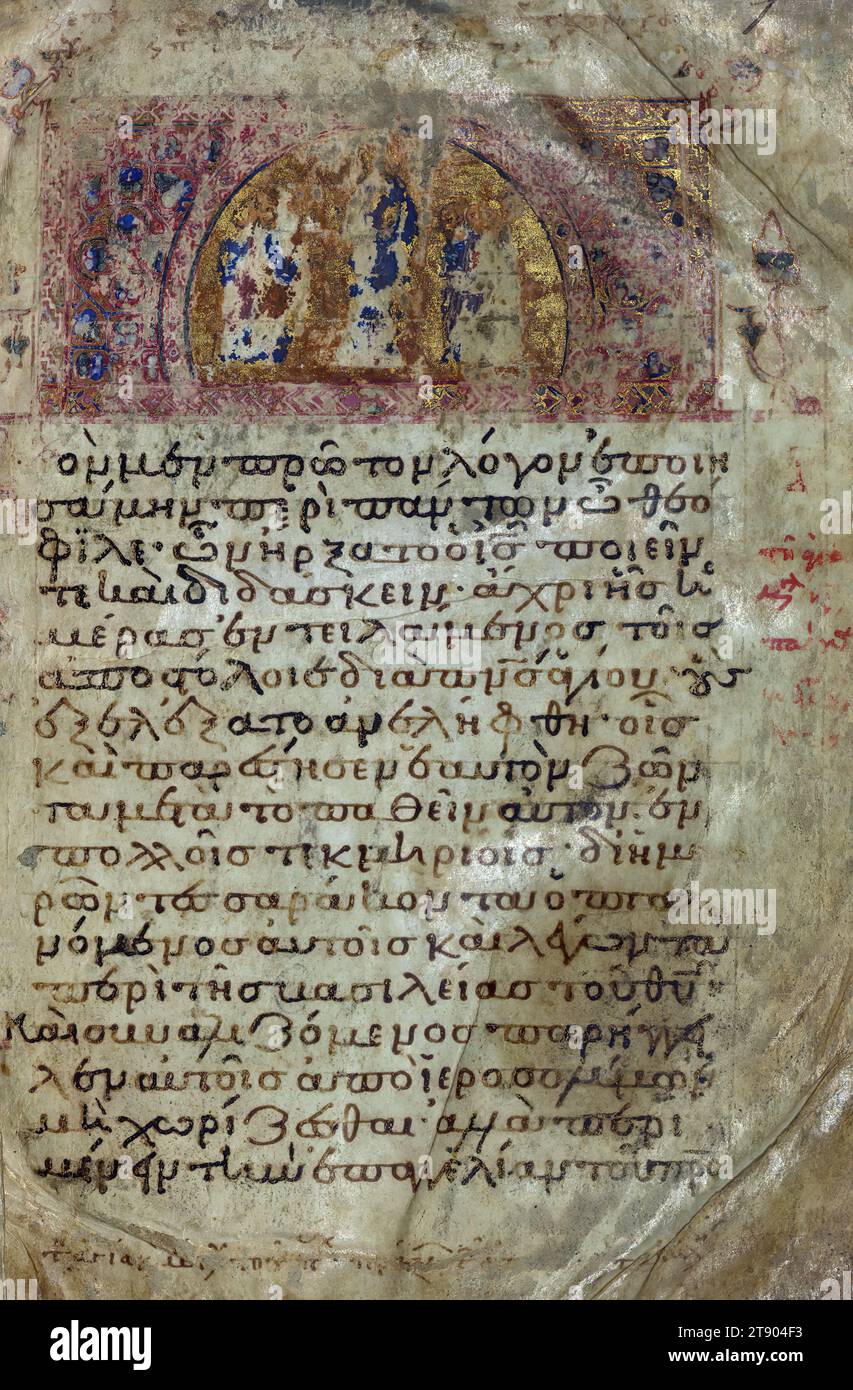 ὸν μὲν πρῶτον λόγον ἐποιη
σάμην περὶ πάντων ὦ θεό
φιλε· ὧν ἤρξατο ὁ ις ποιεῖν
τε καὶ διδάσκειν· ἄχρι ἧς ἡ
μέρας ἐντειλάμενος τοῖς
ἀποστόλοις διὰ πνς ἁγίου οὓς
ἐξελέξατο ἀνελήφθη· οἷς
καὶ παρέστησεν ἑαυτὸν ζῶν
τα μετὰ τὸ παθεῖν αὐτὸν. ἐν
πολλοῖς τεκμηρίοις· δι ἡμε
ρῶν τεσσαράκοντα ὀπτα
νόμενος αὐτοῖς καὶ λέγων τὰ
περὶ τῆς βασιλείας τοῦ θυ
Καὶ συναλιζόμενος παρήγγει
λεν αὐτοῖς ἀπὸ ἱεροσολύμων
μὴ χωρίζεσθαι· ἀλλὰ περι
μένειν τὴν ἐπαγγελίαν τοῦ πρς
alamy
Image ID: 2T904F3
www.alamy.com